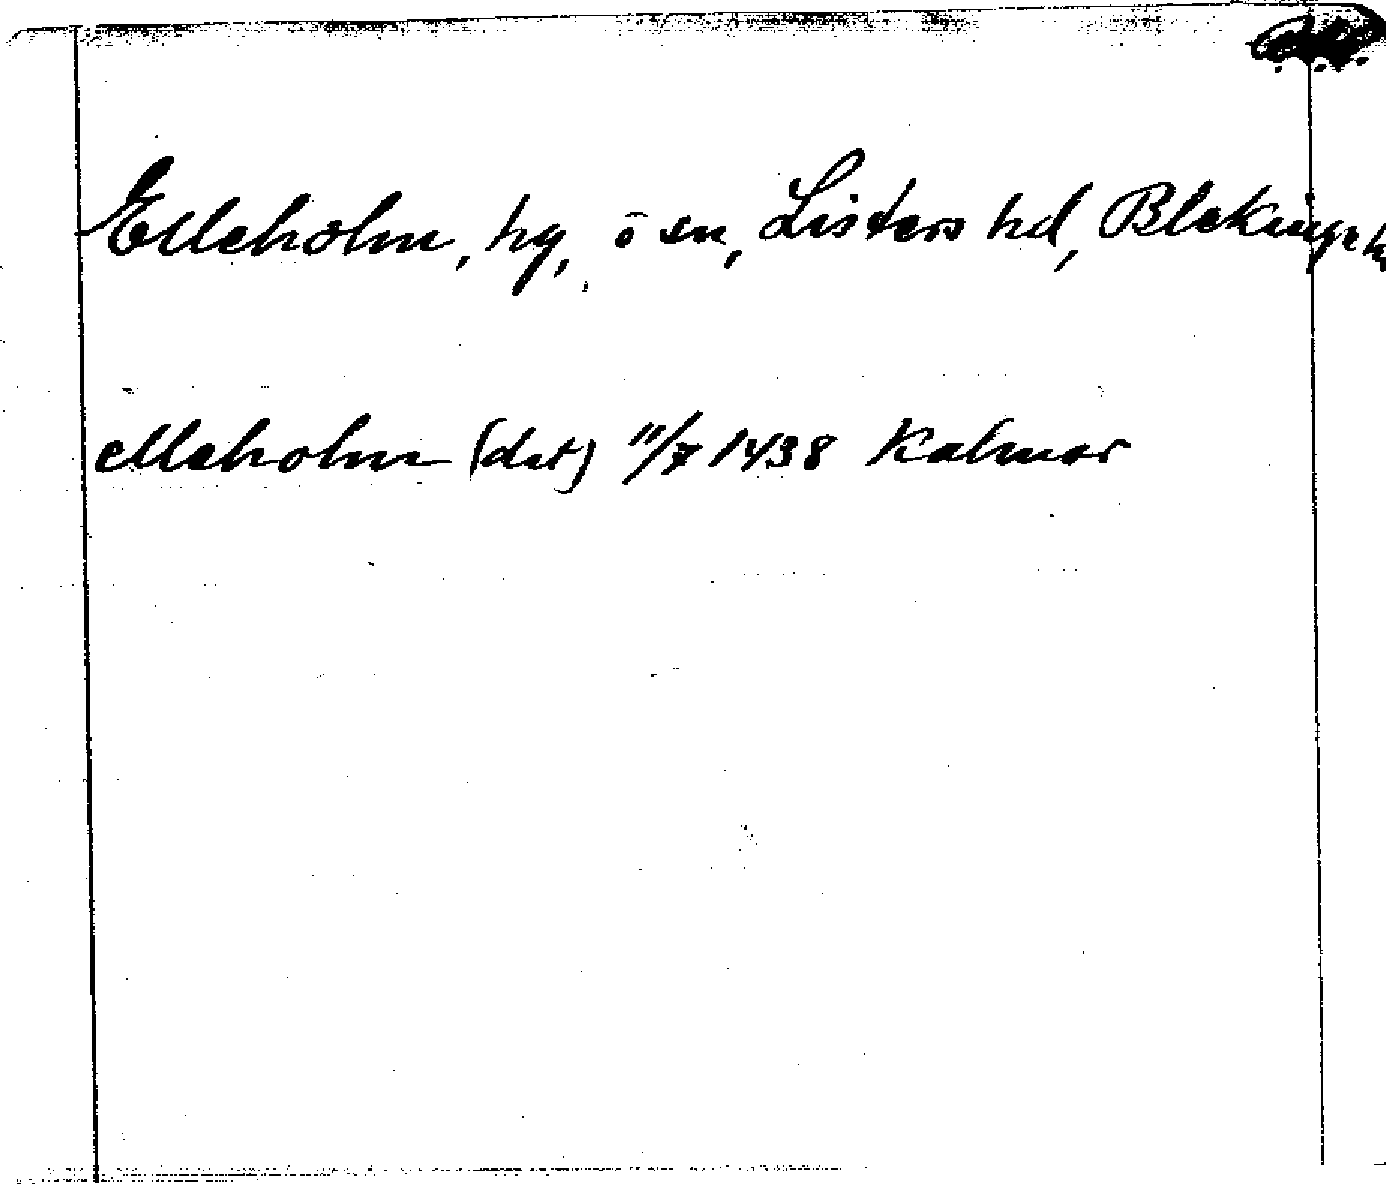 Elleholm, hg, ö sn, Listers hd, Blekinge
elleholm (dat) 11/7 1438 Kalmar